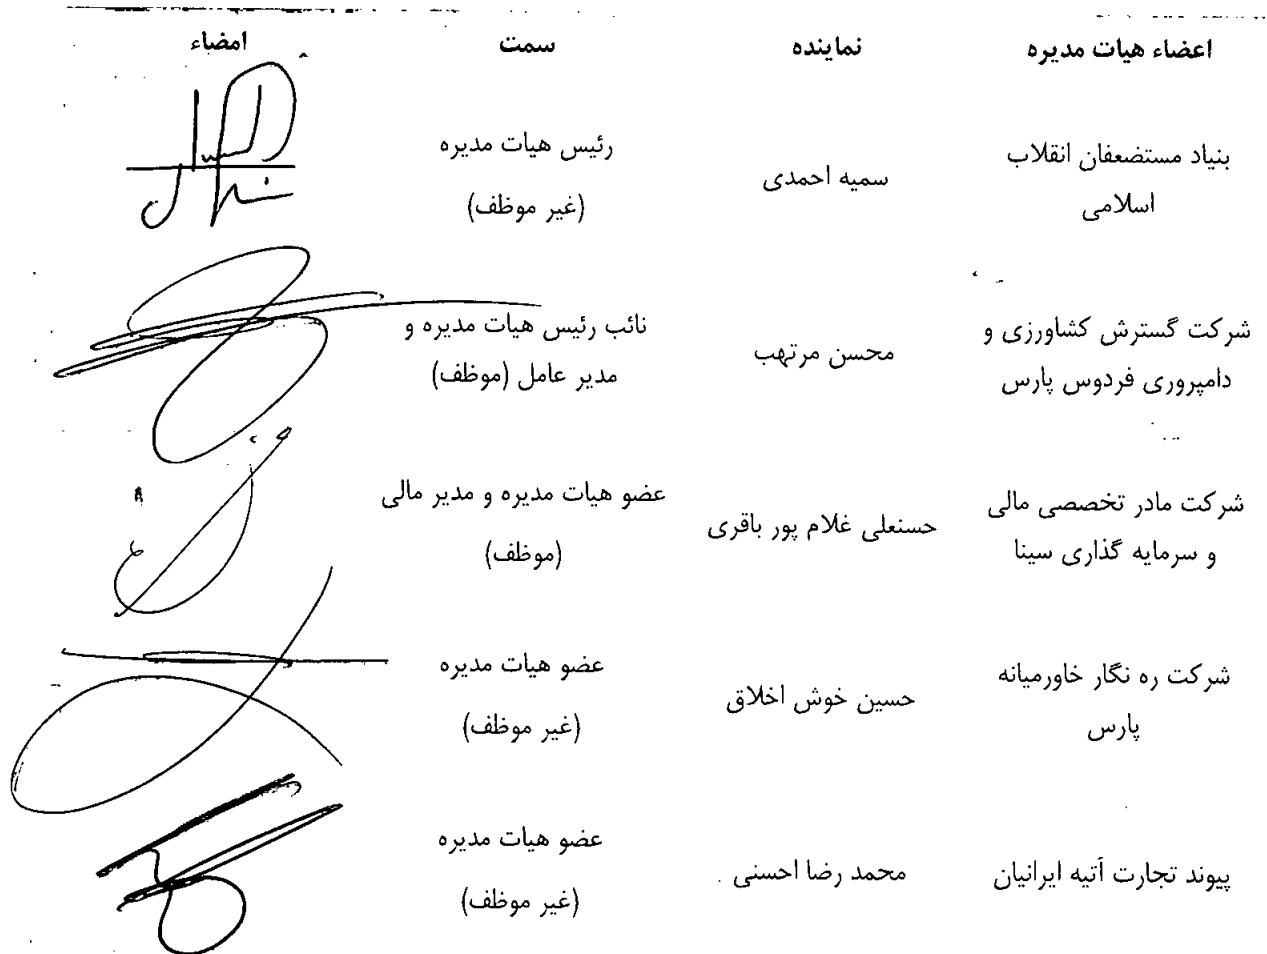 اعضاء هیات مدیره نماینده سمت امضاء
بنیاد مستضعفان انقلاب
اسلامی
سمیه احمدی
رئیس هیات مدیره
(غیر موظف)
شرکت گسترش کشاورزی و
دامپروری فردوس پارس
محسن مرتهب
نائب رئیس هیات مدیره و
مدیر عامل (موظف)
شرکت مادر تخصصی مالی
و سرمایه گذاری سینا
حسنعلی غلام پور باقری
عضو هیات مدیره و مدیر مالی
(موظف)
شرکت ره نگار خاورمیانه
پارس
حسین خوش اخلاق
عضو هیات مدیره
(غیر موظف)
پیوند تجارت آتیه ایرانیان
محمد رضا احسنی
عضو هیات مدیره
(غیر موظف)